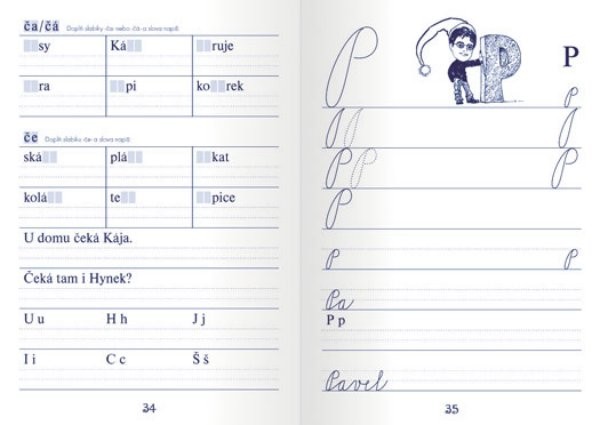 ča/čá Doplň slabiky ča nebo čá a slova napiš.
sy Ká ruje
ra pi ko rek
če Doplň slabiku če a slova napiš.
ská plá kat
kolá te pice
U domu čeká Kája.
Čeká tam i Hynek?
U u H h J j
I i C c Š š
34
P P P
p
P P
P P P
P
p p
Pa
P p
Pavel
35